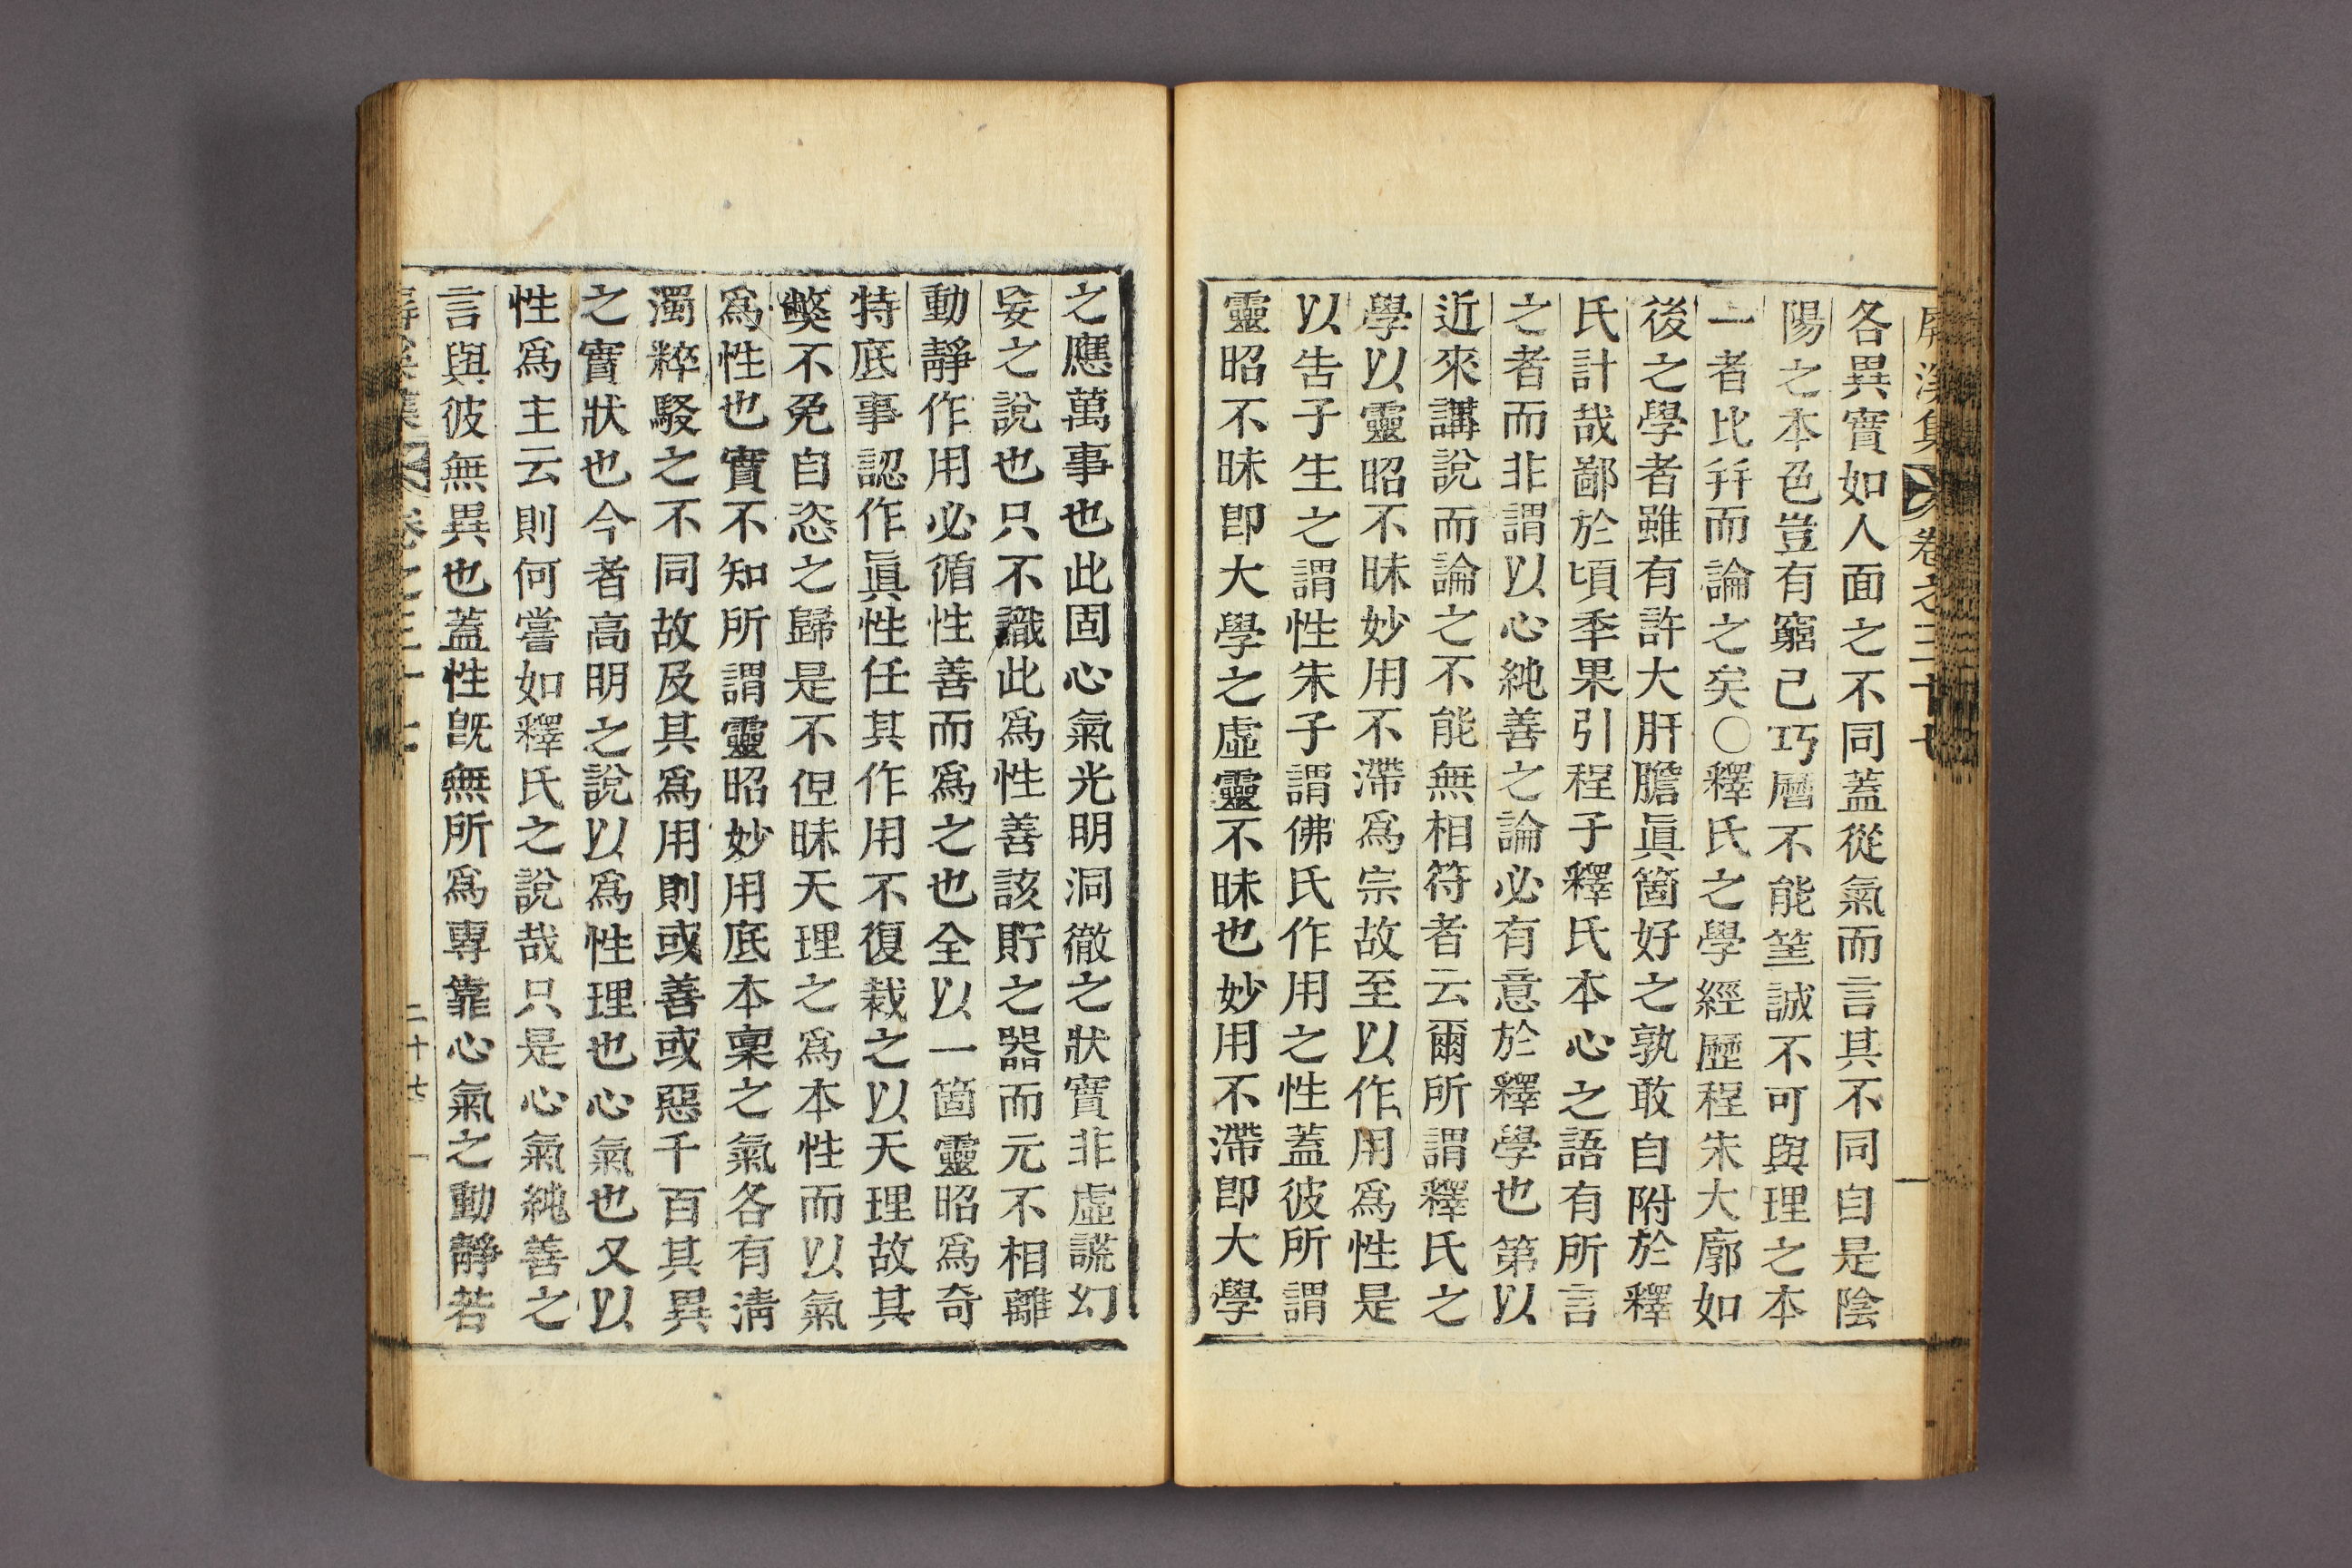 屛溪集 卷之三十七
各異實如人面之不同蓋從氣而言其不同自是陰
陽之本色豈有窮已巧曆不能筭誠不可與理之本
一者比幷而論之矣○釋氏之學經歷程朱大廓如
後之學者雖有許大肝膽眞箇好之孰敢自附於釋
氏計哉鄙於頃年果引程子釋氏本心之語有所言
之者而非謂以心純善之論必有意於釋學也第以
近來講說而論之不能無相符者云爾所謂釋氏之
學以靈昭不昧妙用不滯爲宗故至以作用爲性是
以告子生之謂性朱子謂佛氏作用之性蓋彼所謂
靈昭不昧卽大學之虛靈不昧也妙用不滯卽大學
之應萬事也此固心氣光明洞徹之狀實非虛謊幻
妄之說也只不識此爲性善該貯之器而元不相離
動靜作用必循性善而爲之也全以一箇靈昭爲奇
特底事認作眞性任其作用不復裁之以天理故其
弊不免自恣之歸是不但昧天理之爲本性而以氣
爲性也實不知所謂靈昭妙用底本稟之氣各有淸
濁粹駁之不同故及其爲用則或善或惡千百其異
之實狀也今者高明之說以爲性理也心氣也又以
性爲主云則何嘗如釋氏之說哉只是心氣純善之
言與彼無異也蓋性旣無所爲專靠心氣之動靜若
屛溪集 卷之三十七 二十七